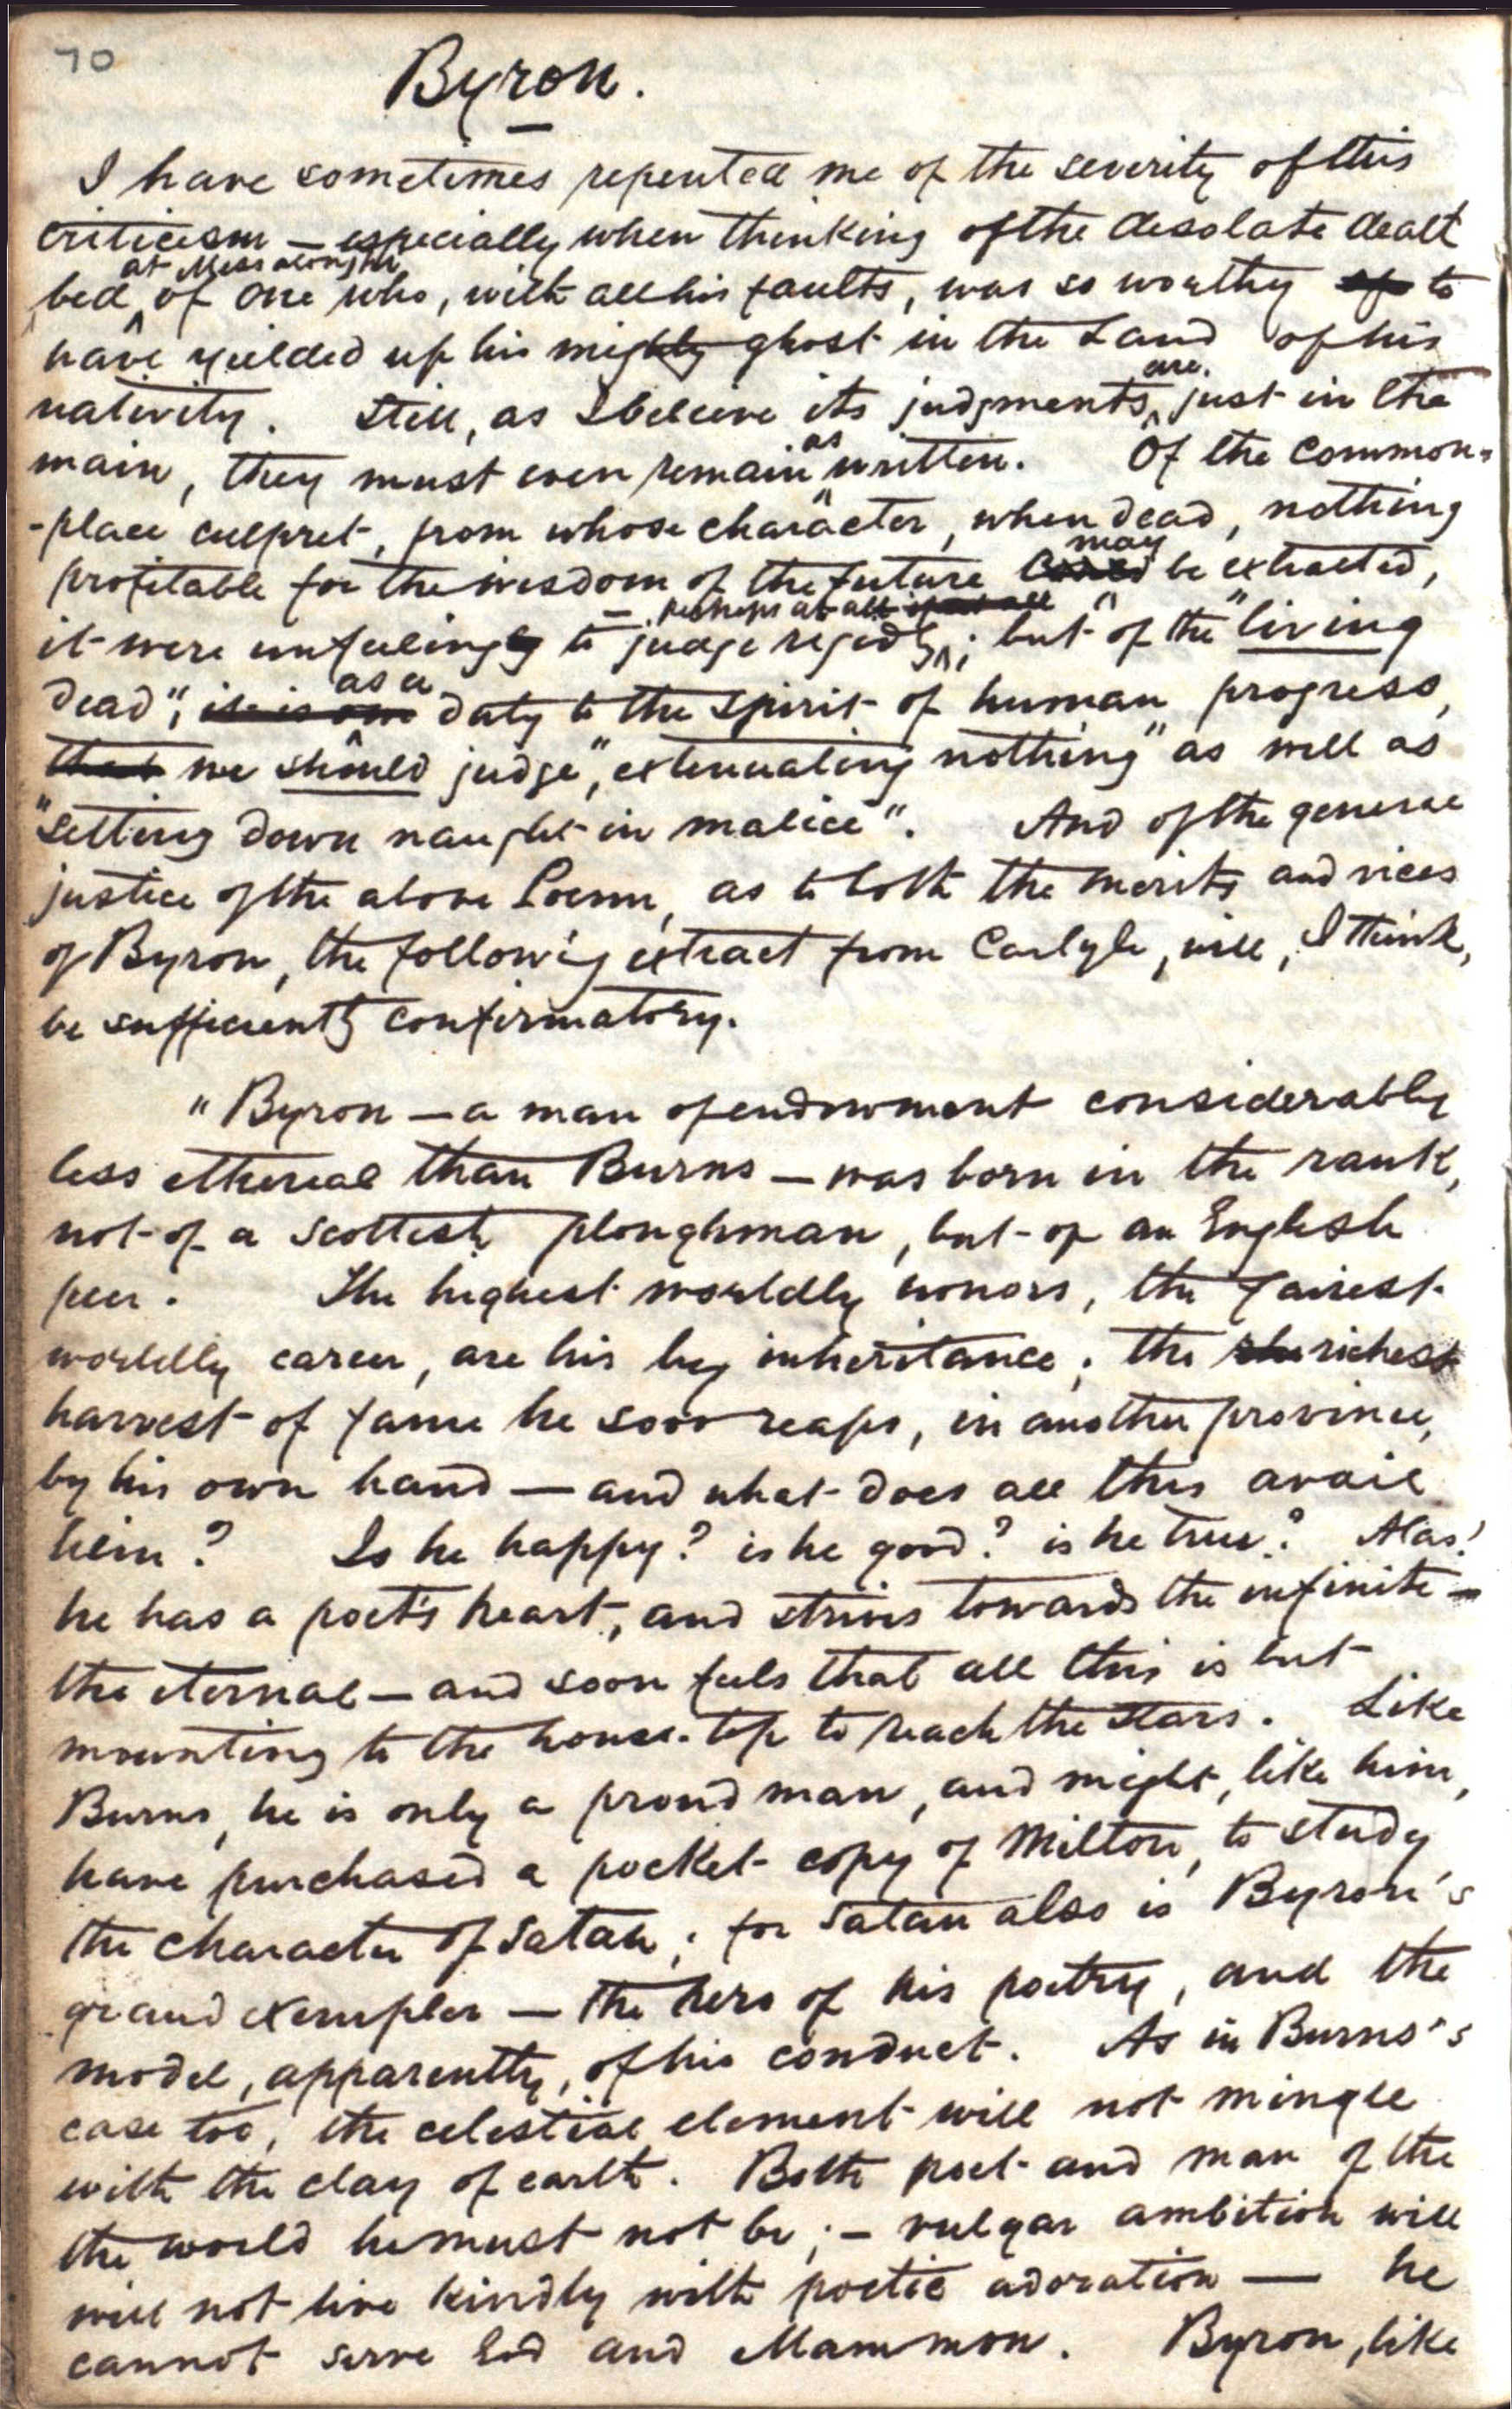 70
Byron.
I have sometimes repented me of the severity of this
criticism — especially when thinking of the desolate death
bed at Messalonghi of one who, with all his faults, was so worthy to
have yielded up his mighty ghost in the Land of his
nativity. Still, as I believe its judgments are just in the
main, they must even remain as written. Of the common-
-place culpret, from whose character, when dead, nothing
profitable for the wisdom of the future may be extracted,
it were unfeeling to judge rigedly, perhaps at all; but of the "living
dead", as a duty to the Spirit of human progress,
we should judge, "extenuating nothing" as well as
"setting down naught in malice". And of the general
justice of the above Poem, as to both the merits and vices
of Byron, the follow'g extract from Carlyle, will, I think,
be sufficiently confirmatory.
"Byron — a man of endowment considerably
less ethereal than Burns — was born in the rank,
not of a Scottish ploughman, but of an English
peer. The highest worldly honors, the fairest
worldly career, are his by inheritance; the richest
harvest of fame he soon reaps, in another province,
by his own hand — and what does all this avail
him? Is he happy? is he good? is he true? Alas!
he has a poet's heart, and strives towards the infinite —
the eternal — and soon feels that all this is but
mounting to the house-top to reach the stars. Like
Burns, he is only a proud man, and might, like him,
have purchased a pocket copy of Milton, to study
the character of Satan; for Satan also is Byron's
grand exemplar — the hero of his poetry, and the
model, apparently, of his conduct. As in Burns's
case too, the celestial element will not mingle
with the clay of earth. Both poet and man of the
the world he must not be; — vulgar ambition will
will not live kindly with poetic adoration — he
cannot serve God and Mammon. Byron, like